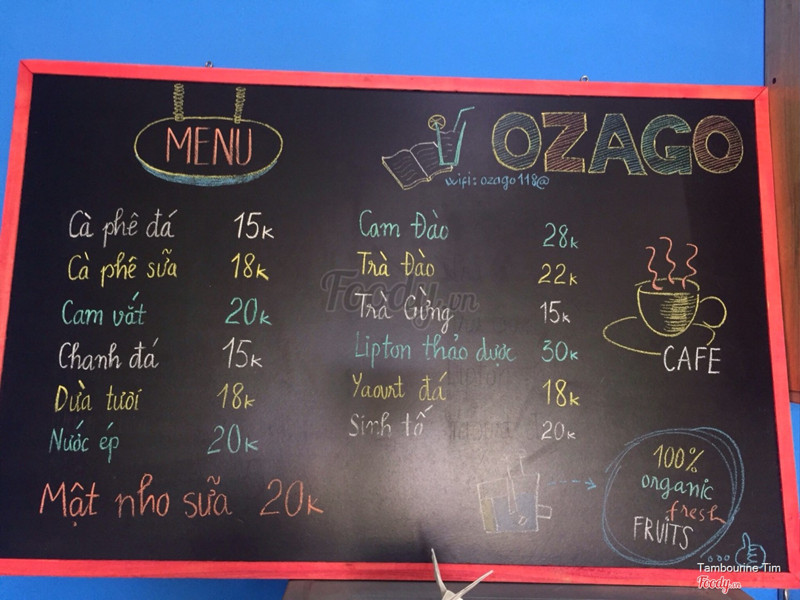 MENU
OZAGO
wifi: ozago118@
Cà phê đá 15K
Cà phê sữa 18K
Cam vắt 20K
Chanh đá 15K
Dừa tươi 18K
Nước ép 20K
Mật nho sữa 20K
Cam Đào 28K
Trà Đào 22K
Trà Gừng 15K
Lipton thảo dược 30K
Yaourt đá 18K
Sinh tố 20K
CAFE
100%
organic
fresh
FRUITS
Foody.vn
Tambourine Tim
Foody.vn